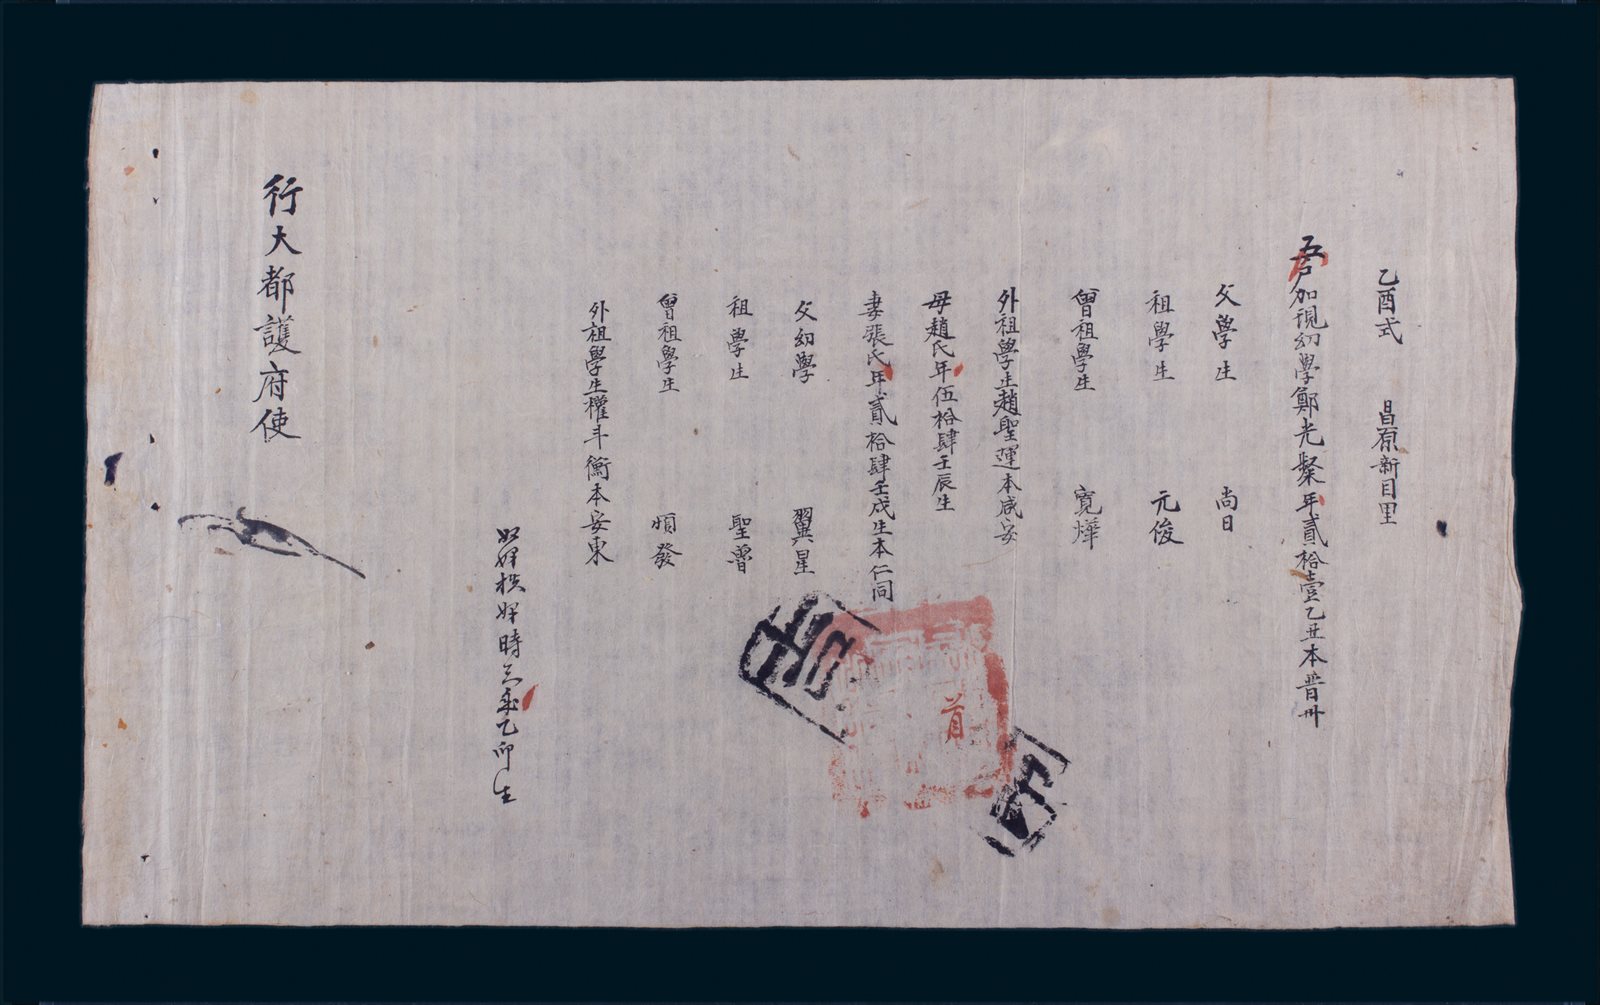 乙酉式 昌原新目里
五戶加現幼學鄭光粲年貳拾壹乙丑本晋州
父學生 尚日
祖學生 元俊
曾祖學生 寬燁
外祖學生趙聖運本咸安
母趙氏年伍拾肆壬辰生
妻張氏年貳拾肆壬戌生本仁同
父幼學 翼星
祖學生 聖魯
曾祖學生 順發
外祖學生權斗衡本安東
奴婢秩婢時三年乙卯生
行大都護府使